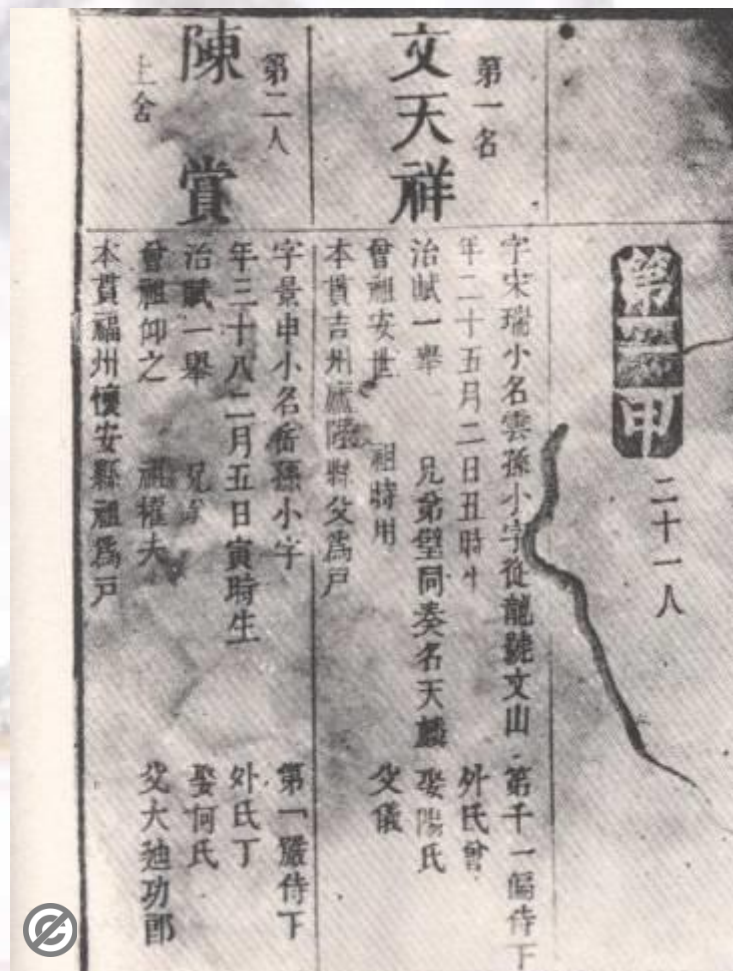 第一甲
二十一人
第一名
文天祥
字宋瑞小名雲孫小字從龍號文山 第千一偏侍下
年二十五月二日丑時生 外氏曾
治賦一舉 兄弟璧同奏名天麟 娶陽氏
曾祖安世 祖時用 父儀
本貫吉州廬陵縣父為戶
第二人
陳賞
上舍
字景申小名 孫小字 第一嚴侍下
年三十八二月五日寅時生 外氏丁
治賦一舉 兄弟 娶何氏
曾祖仰之 祖權夫 父大 廸功郎
本貫福州懷安縣祖為戶